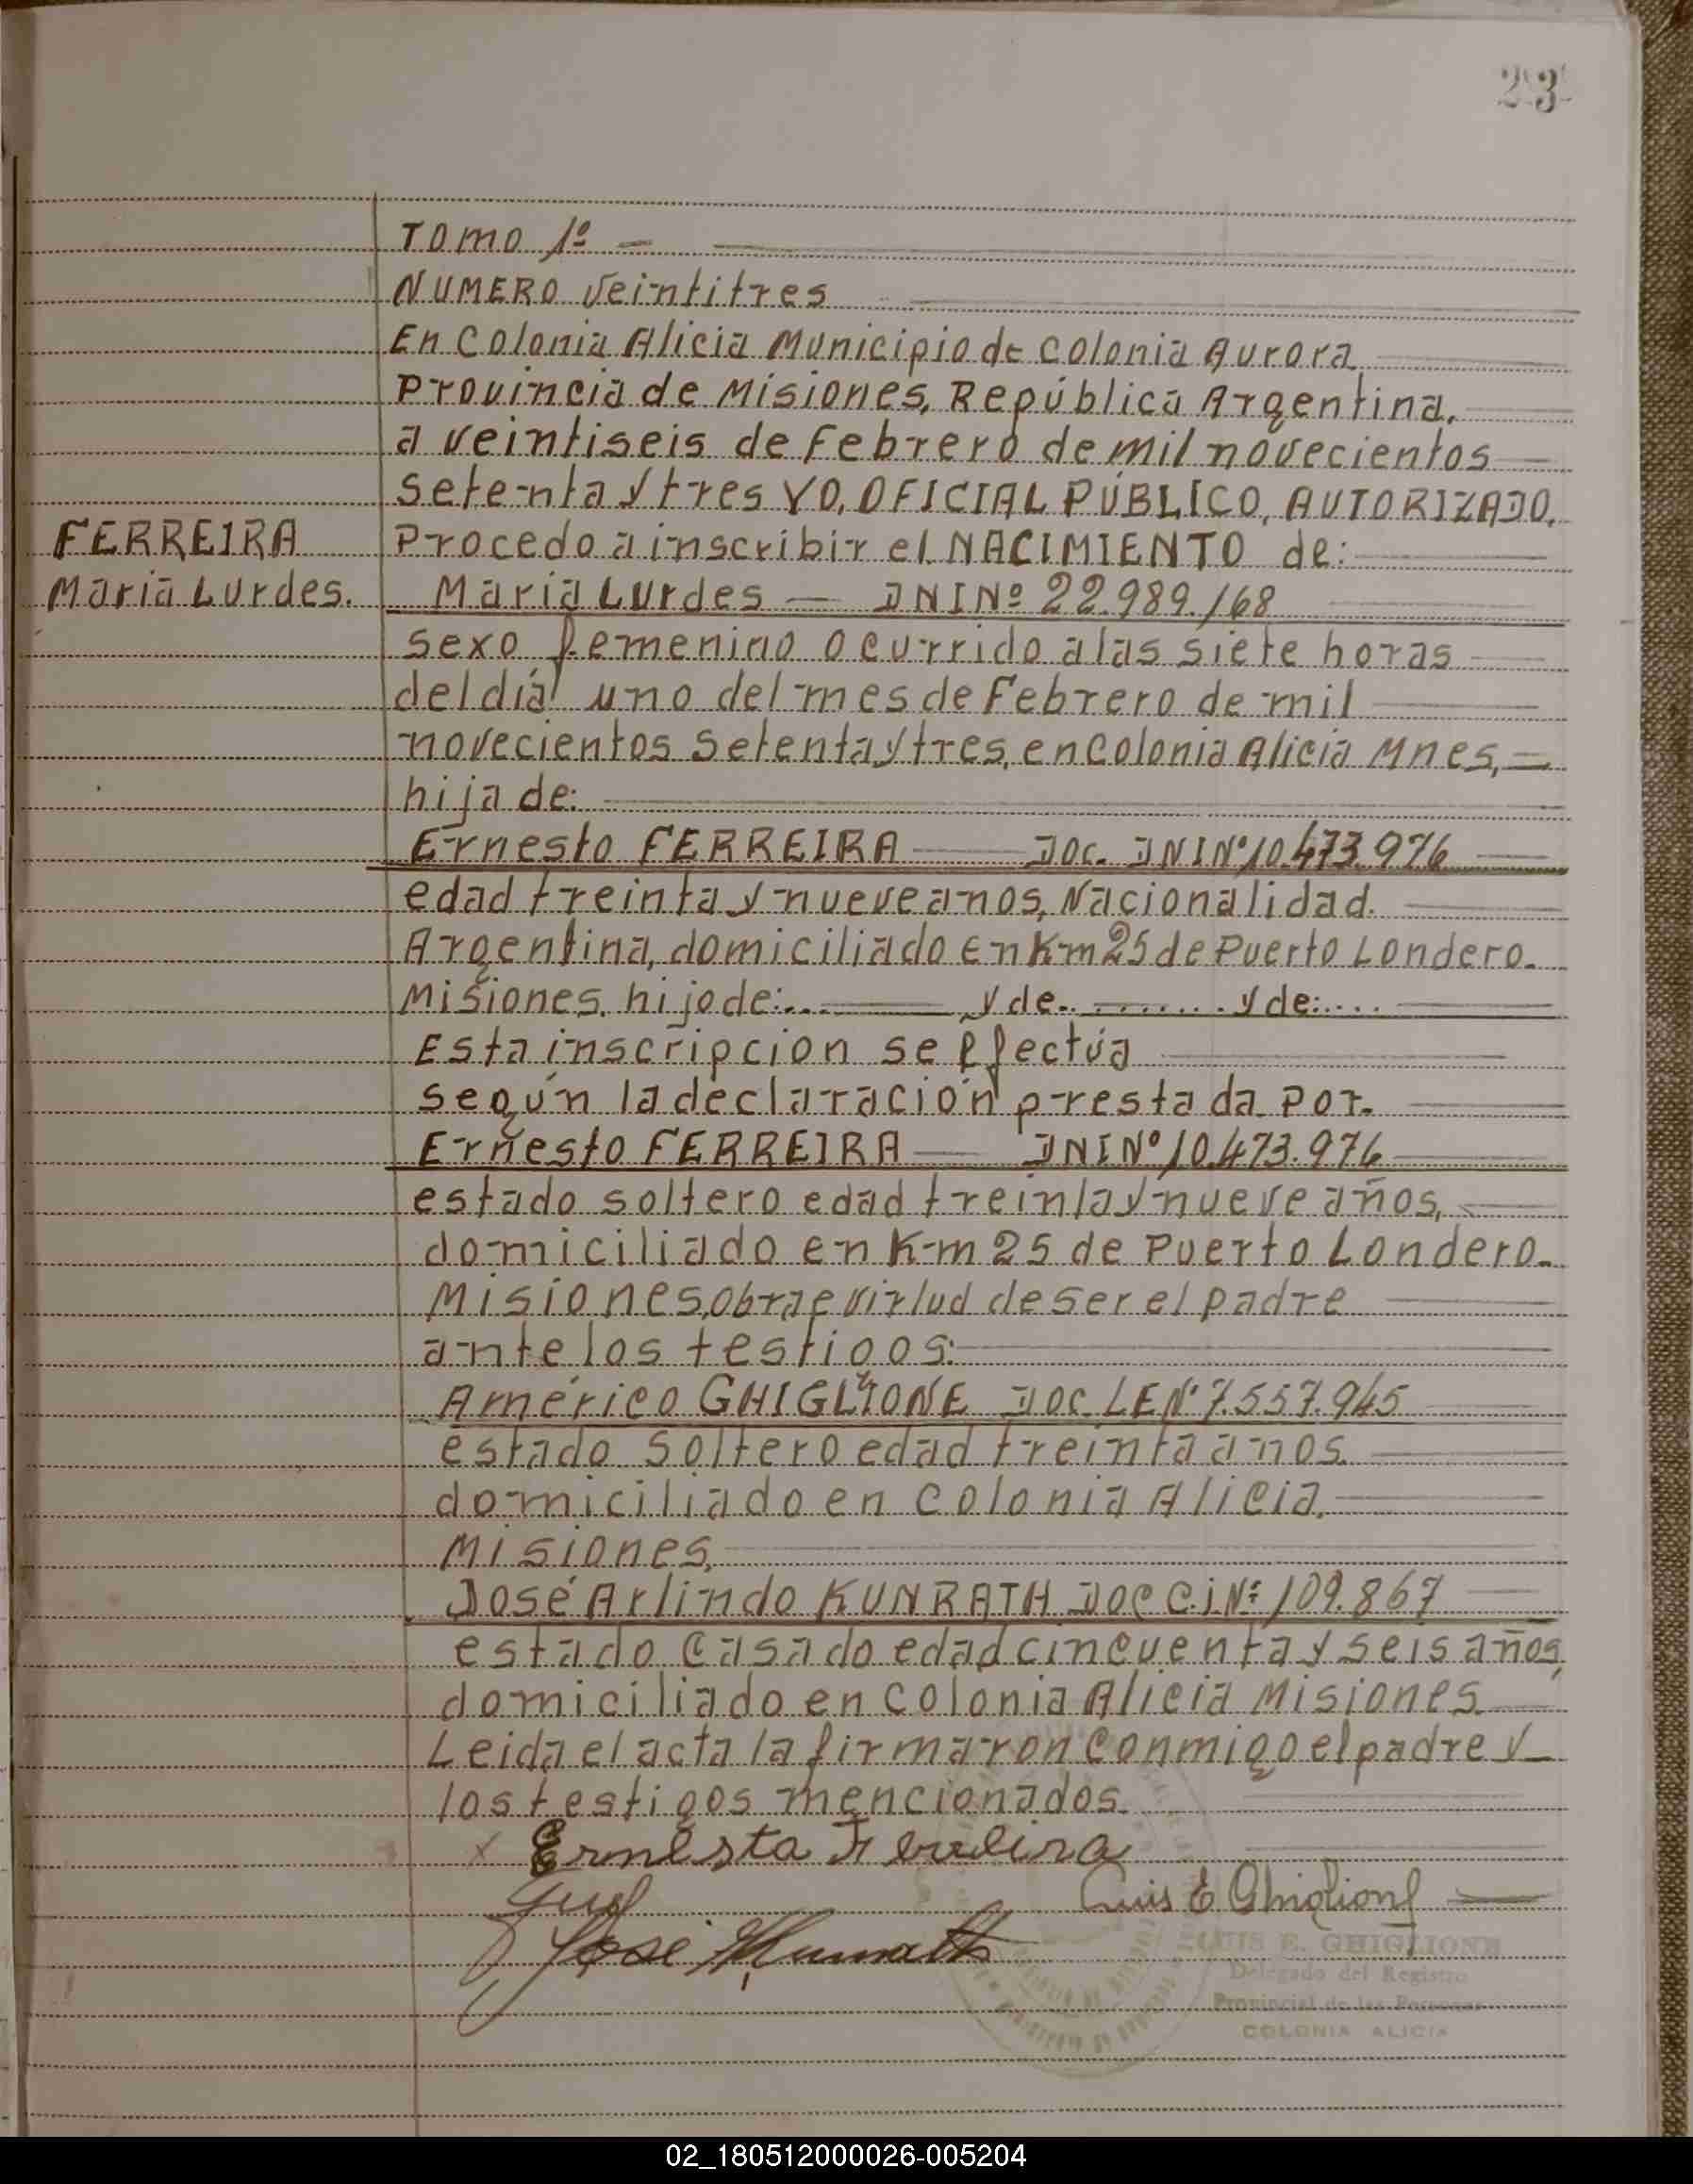 23
TOMO 1º
NUMERO Veintitres
En Colonia Alicia Municipio de Colonia Aurora
Provincia de Misiones, República Argentina,
a veintiseis de Febrero de mil novecientos
setenta y tres YO, OFICIAL PÚBLICO, AUTORIZADO,
FERREIRA Procedo a inscribir el NACIMIENTO de:
Maria Lurdes. Maria Lurdes — DNI Nº 22.989.168
sexo femenino ocurrido a las siete horas
del día uno del mes de Febrero de mil
novecientos setenta y tres, en Colonia Alicia Mnes,
hija de:
Ernesto FERREIRA — DOC. DNI Nº 10.473.976
edad treinta y nueve anos, Nacionalidad.
Argentina, domiciliado en Km 25 de Puerto Londero.
Misiones, hijo de:... y de......... y de:....
Esta inscripcion se efectúa
según la declaración prestada por.
Ernesto FERREIRA — DNI Nº 10.473.976
estado soltero edad treinta y nueve años,
domiciliado en Km 25 de Puerto Londero.
Misiones, obra e virtud de ser el padre
ante los testigos:
Américo GHIGLIONE DOC LE Nº 7.557.945
estado soltero edad treinta anos.
domiciliado en Colonia Alicia,
Misiones,
José Arlindo KUNRATH DOC C.i. Nº 109.867
estado casado edad cincuenta y seis años,
domiciliado en Colonia Alicia Misiones
Leida el acta la firmaron conmigo el padre y
los testigos mencionados.
Luis E Ghiglione
José Kunrath
LUIS E. GHIGLIONE
Delegado del Registro
Provincial de las Personas
COLONIA ALICIA
02_180512000026-005204